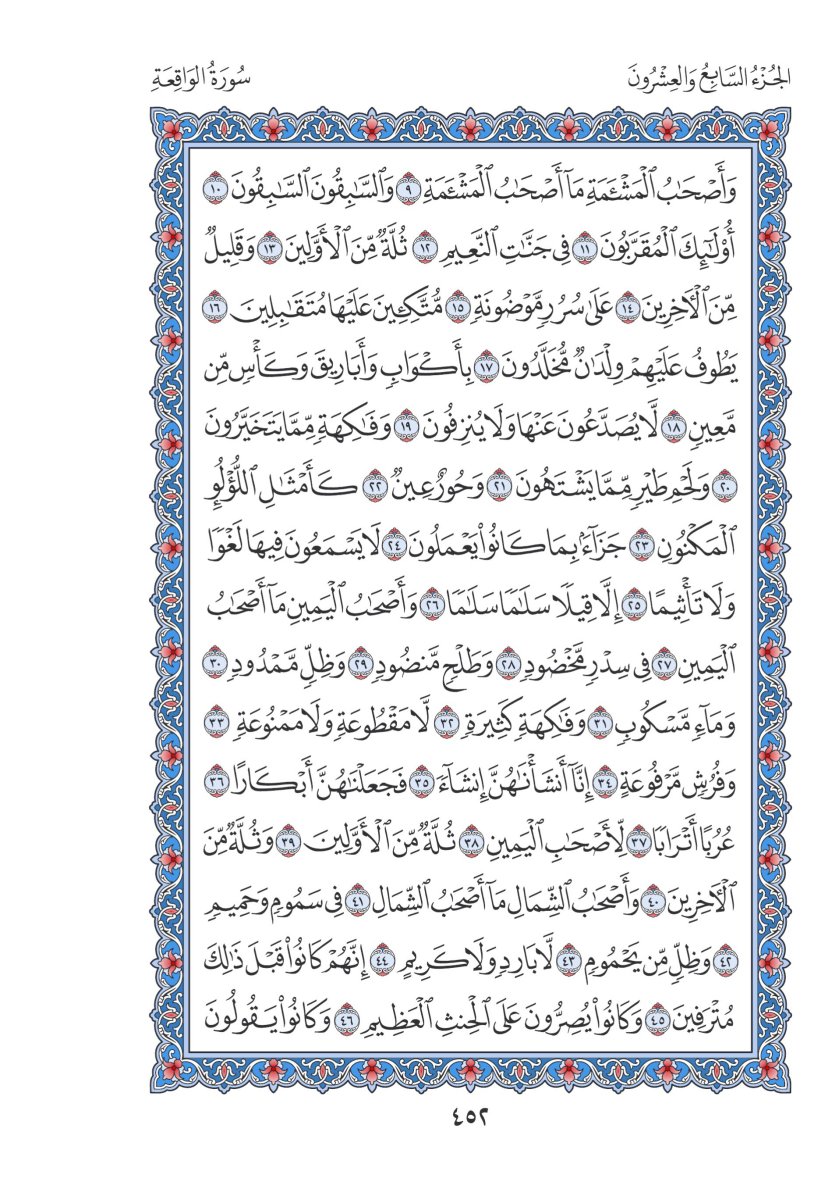 الجُزْءُ السَّابِعُ وَالعِشْرُونَ
سُورَةُ الوَاقِعَةِ
وَأَصْحَٰبُ ٱلْمَشْـَٔمَةِ مَآ أَصْحَٰبُ ٱلْمَشْـَٔمَةِ ٩ وَٱلسَّٰبِقُونَ ٱلسَّٰبِقُونَ ١٠
أُو۟لَٰٓئِكَ ٱلْمُقَرَّبُونَ ١١ فِى جَنَّٰتِ ٱلنَّعِيمِ ١٢ ثُلَّةٌ مِّنَ ٱلْأَوَّلِينَ ١٣ وَقَلِيلٌ
مِّنَ ٱلْـَٔاخِرِينَ ١٤ عَلَىٰ سُرُرٍ مَّوْضُونَةٍ ١٥ مُّتَّكِـِٔينَ عَلَيْهَا مُتَقَٰبِلِينَ ١٦
يَطُوفُ عَلَيْهِمْ وِلْدَٰنٌ مُّخَلَّدُونَ ١٧ بِأَكْوَابٍ وَأَبَارِيقَ وَكَأْسٍ مِّن
مَّعِينٍ ١٨ لَّا يُصَدَّعُونَ عَنْهَا وَلَا يُنزِفُونَ ١٩ وَفَٰكِهَةٍ مِّمَّا يَتَخَيَّرُونَ
٢٠ وَلَحْمِ طَيْرٍ مِّمَّا يَشْتَهُونَ ٢١ وَحُورٌ عِينٌ ٢٢ كَأَمْثَٰلِ ٱللُّؤْلُؤِ
ٱلْمَكْنُونِ ٢٣ جَزَآءًۢ بِمَا كَانُوا۟ يَعْمَلُونَ ٢٤ لَا يَسْمَعُونَ فِيهَا لَغْوًا
وَلَا تَأْثِيمًا ٢٥ إِلَّا قِيلًا سَلَٰمًا سَلَٰمًا ٢٦ وَأَصْحَٰبُ ٱلْيَمِينِ مَآ أَصْحَٰبُ
ٱلْيَمِينِ ٢٧ فِى سِدْرٍ مَّخْضُودٍ ٢٨ وَطَلْحٍ مَّنضُودٍ ٢٩ وَظِلٍّ مَّمْدُودٍ ٣٠
وَمَآءٍ مَّسْكُوبٍ ٣١ وَفَٰكِهَةٍ كَثِيرَةٍ ٣٢ لَّا مَقْطُوعَةٍ وَلَا مَمْنُوعَةٍ ٣٣
وَفُرُشٍ مَّرْفُوعَةٍ ٣٤ إِنَّآ أَنشَأْنَٰهُنَّ إِنشَآءً ٣٥ فَجَعَلْنَٰهُنَّ أَبْكَارًا ٣٦
عُرُبًا أَتْرَابًا ٣٧ لِّأَصْحَٰبِ ٱلْيَمِينِ ٣٨ ثُلَّةٌ مِّنَ ٱلْأَوَّلِينَ ٣٩ وَثُلَّةٌ مِّنَ
ٱلْـَٔاخِرِينَ ٤٠ وَأَصْحَٰبُ ٱلشِّمَالِ مَآ أَصْحَٰبُ ٱلشِّمَالِ ٤١ فِى سَمُومٍ وَحَمِيمٍ
٤٢ وَظِلٍّ مِّن يَحْمُومٍ ٤٣ لَّا بَارِدٍ وَلَا كَرِيمٍ ٤٤ إِنَّهُمْ كَانُوا۟ قَبْلَ ذَٰلِكَ
مُتْرَفِينَ ٤٥ وَكَانُوا۟ يُصِرُّونَ عَلَى ٱلْحِنثِ ٱلْعَظِيمِ ٤٦ وَكَانُوا۟ يَقُولُونَ
٤٥٢